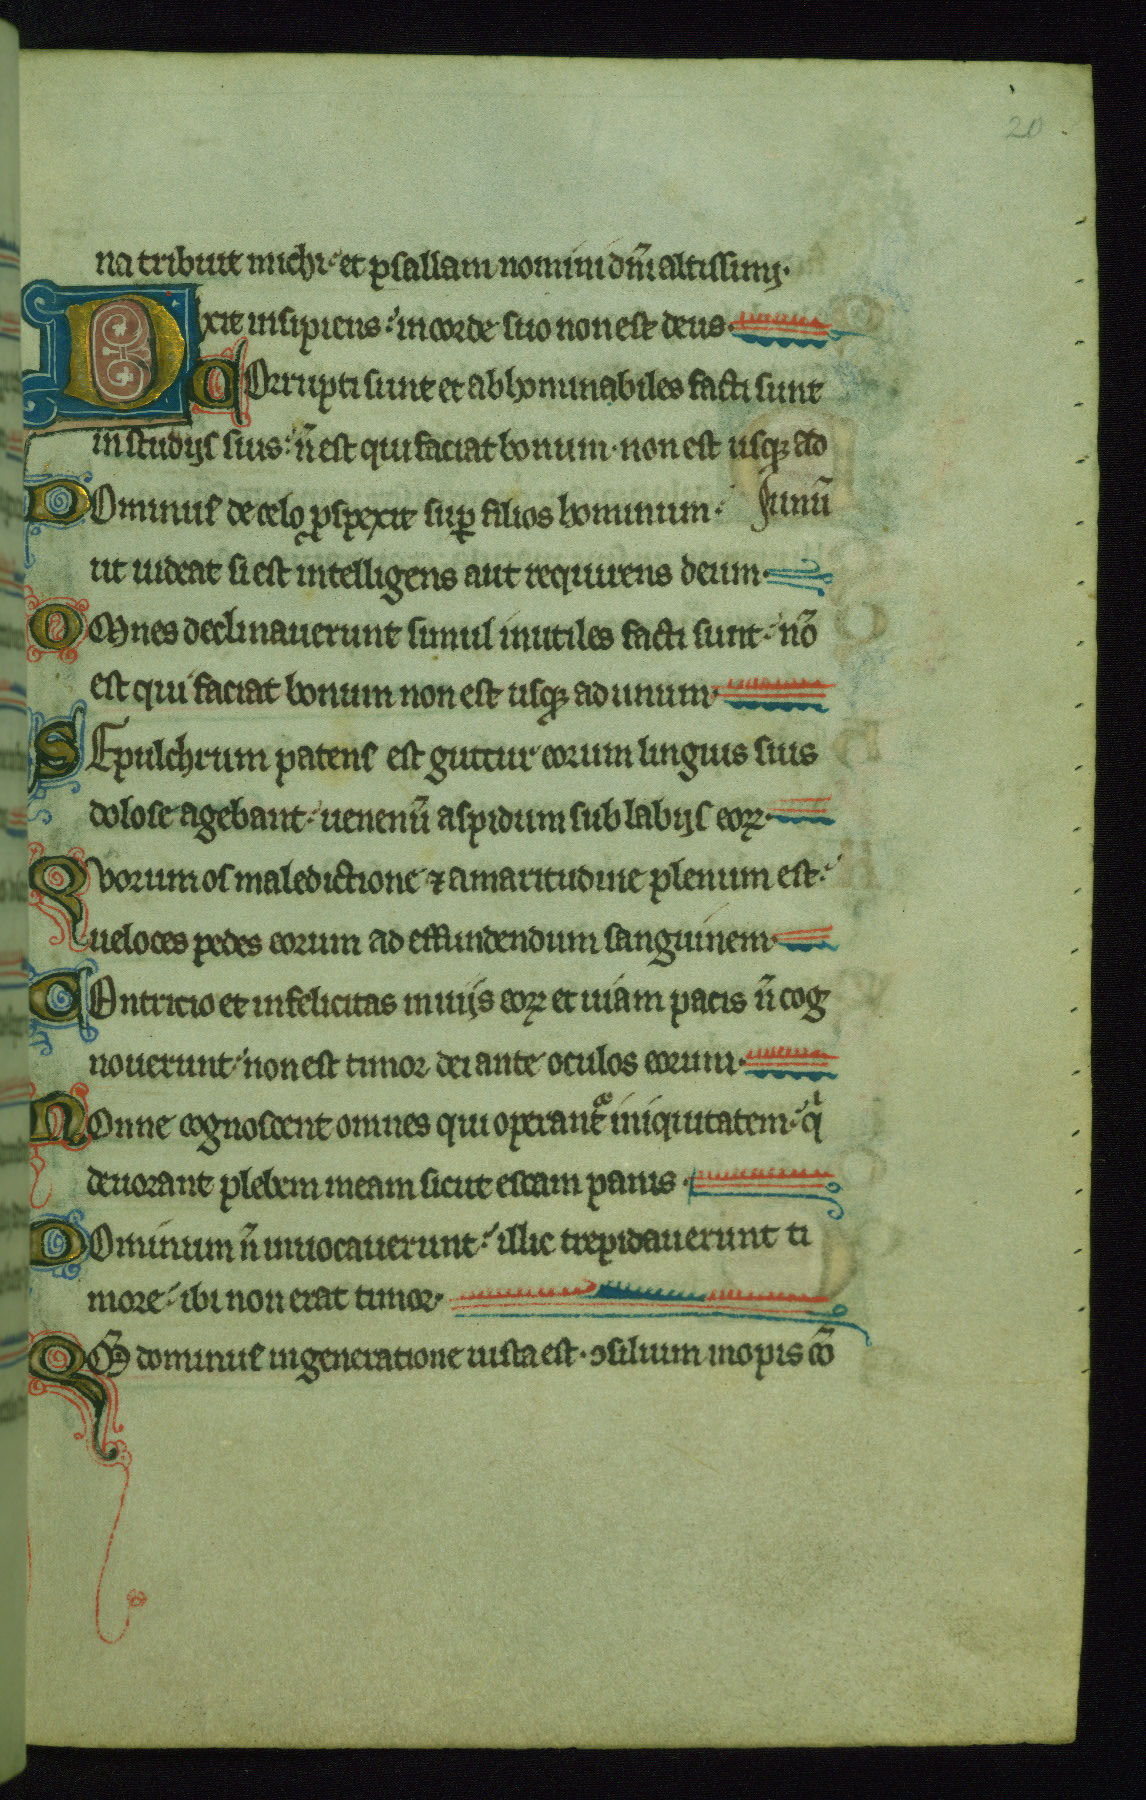 20
na tribuit michi et psallam nomini dñi altissimi.
Dixit insipiens in corde suo non est deus.
Corrupti sunt et abhominabiles facti sunt
in studijs suis ñ est qui faciat bonum. non est usq̧ ad
Dominus de celo pspexit sup filios hominum. unũ
ut uideat si est intelligens aut requirens deum.
Omnes declinauerunt simul inutiles facti sunt nõ
est qui faciat bonum non est usq̧ ad unum.
Sepulchrum patens est guttur eorum linguis suis
dolose agebant uenenũ aspidum sub labijs eoꝝ
Quorum os maledictione ⁊ amaritudine plenum est
ueloces pedes eorum ad effundendum sanguinem.
Contricio et infelicitas in uijs eoꝝ et uiam pacis ñ cog
nouerunt non est timor dei ante oculos eorum.
Nonne cognoscent omnes qui operant᷑ iniquitatem qͥ
deuorant plebem meam sicut escam panis.
Dominum ñ inuocauerunt illic trepidauerunt ti
more ibi non erat timor.
Qm̃ dominus in generatione iusta est. ꝯsilium inopis cõ